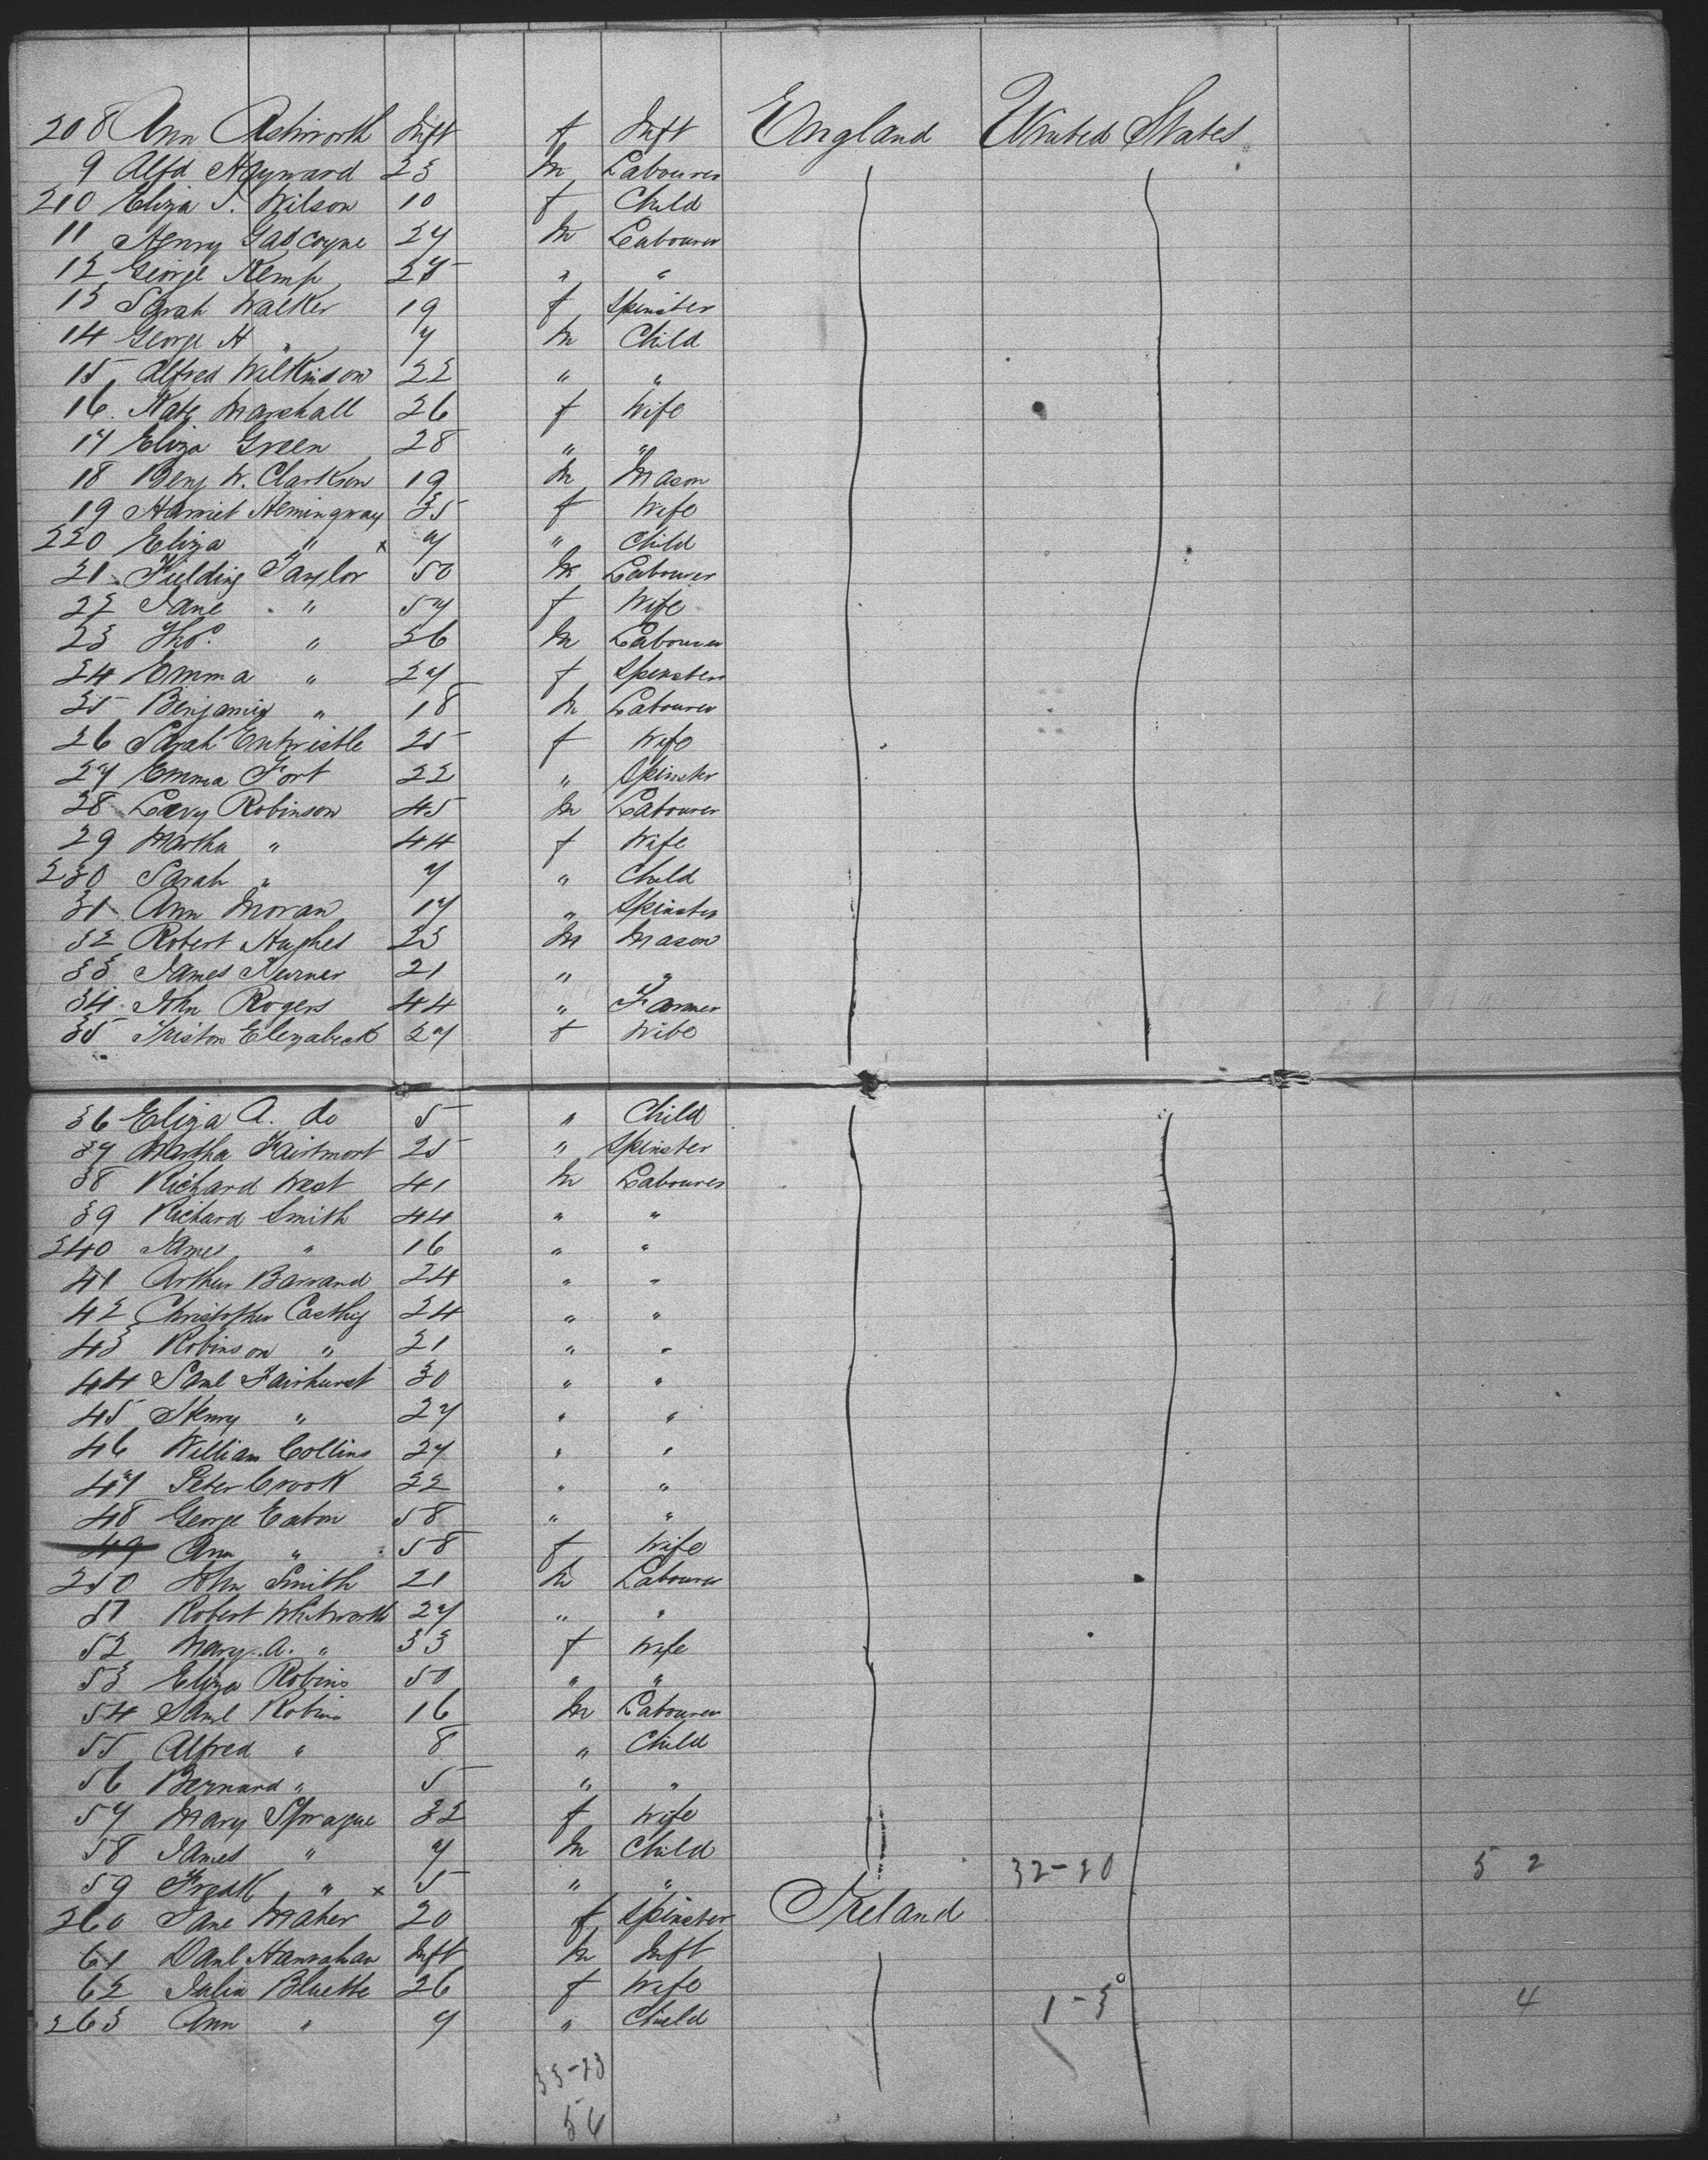 208 Ann Ashworth Inft f Inft England United States
9 Alfd Hayward 23 m Labourer
210 Eliza S. Wilson 10 f Child
11 Henry Gascoyne 27 m Labourer
12 George Kemp " "
13 Sarah Walker 19 f Spinster
14 George H " 7 m Child
15 Alfred Wilkinson 22 " "
16 Kate Marshall 26 f Wife
17 Eliza Green 28 " "
18 Benj W. Clarkson 19 m Mason
19 Harriet Hemingway 35 f Wife
220 Eliza " x 7 " Child
21 Fielding Taylor 50 m Labourer
22 Jane " 57 f Wife
23 Thos. " 26 m Labourer
24 Emma " 27 f Spinster
25 Benjamin " 18 m Labourer
26 Sarah Entwistle 25 f Wife
27 Emma Fort 22 " Spinster
28 Levy Robinson 45 m Labourer
29 Martha " 44 f Wife
230 Sarah " 7 " Child
31 Ann Moran 17 " Spinster
32 Robert Hughes 23 m Mason
33 James Turner 21 " "
34 John Rogers 44 " Farmer
35 Elizabeth 27 f Wife
36 Eliza A. do 5 " Child
37 Martha 25 " Spinster
38 Richard West 41 m Labourer
39 Richard Smith 44 " "
240 James " 16 " "
41 Arthur Barrand 24 " "
42 Christopher 24 " "
43 Robinson " 21 " "
44 Saml Fairhurst 30 " "
45 Henry " 27 " "
46 William Collins 27 " "
47 Peter Crook 22 " "
48 George Eaton 58 " "
49 Ann " 58 f Wife
250 John Smith 21 m Labourer
51 Robert Whitworth 27 " "
52 Mary A. " 33 f Wife
53 Eliza Robins 50 " "
54 Saml Robins 16 m Labourer
55 Alfred " 8 " Child
56 Bernard " 5 " "
57 Mary Sprague 32 f Wife
58 James " 7 m Child
59 Fredk " x 5 " " 32-20 52
260 Jane Maher 20 f Spinster Ireland
61 Danl Hanrahan Inft m Inft
62 Julia Bluette 26 f Wife
263 Ann " 7 " Child 1-3 4
33-23
56